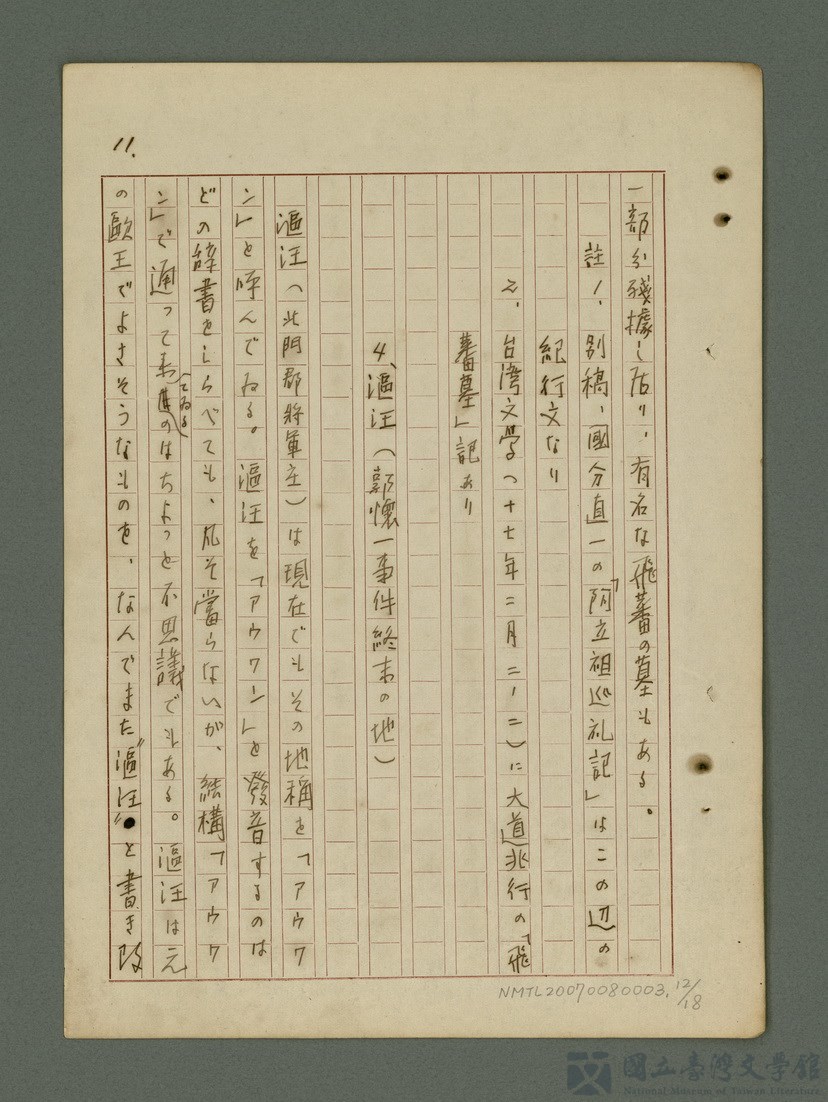 11.
一部分殘據し居り、有名な飛蕃の墓もある。
註1、別稿、國分直一の「阿立祖巡礼記」はこの辺の
紀行文なり
2、台湾文學(十七年二月二ノ二)に大道兆行の「飛
蕃墓」記あり
4、漚汪(郭懷一事件終末の地)
漚汪(北門郡將軍庄)は現在でもその地稱を「アウワ
ン」と呼んでゐる。漚汪を「アウワン」と發音するのは
どの辞書をしらべても、凡そ當らないが、結構「アウワ
ン」で通って来てゐるのはちよっと不思議でもある。漚汪は元
の歐王でよさそうなものを、なんでまた“漚汪”と書き改
NMTL20070080003, 12/18
國立臺灣文學館
National Museum of Taiwan Literature